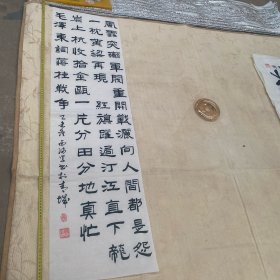 風雲突變軍閥重開戰灑向人間都是怨
一枕黃粱再現紅旗躍過汀江直下龍
岩上杭收拾金甌一片分田分地真忙
毛澤東詞蔣桂戰爭